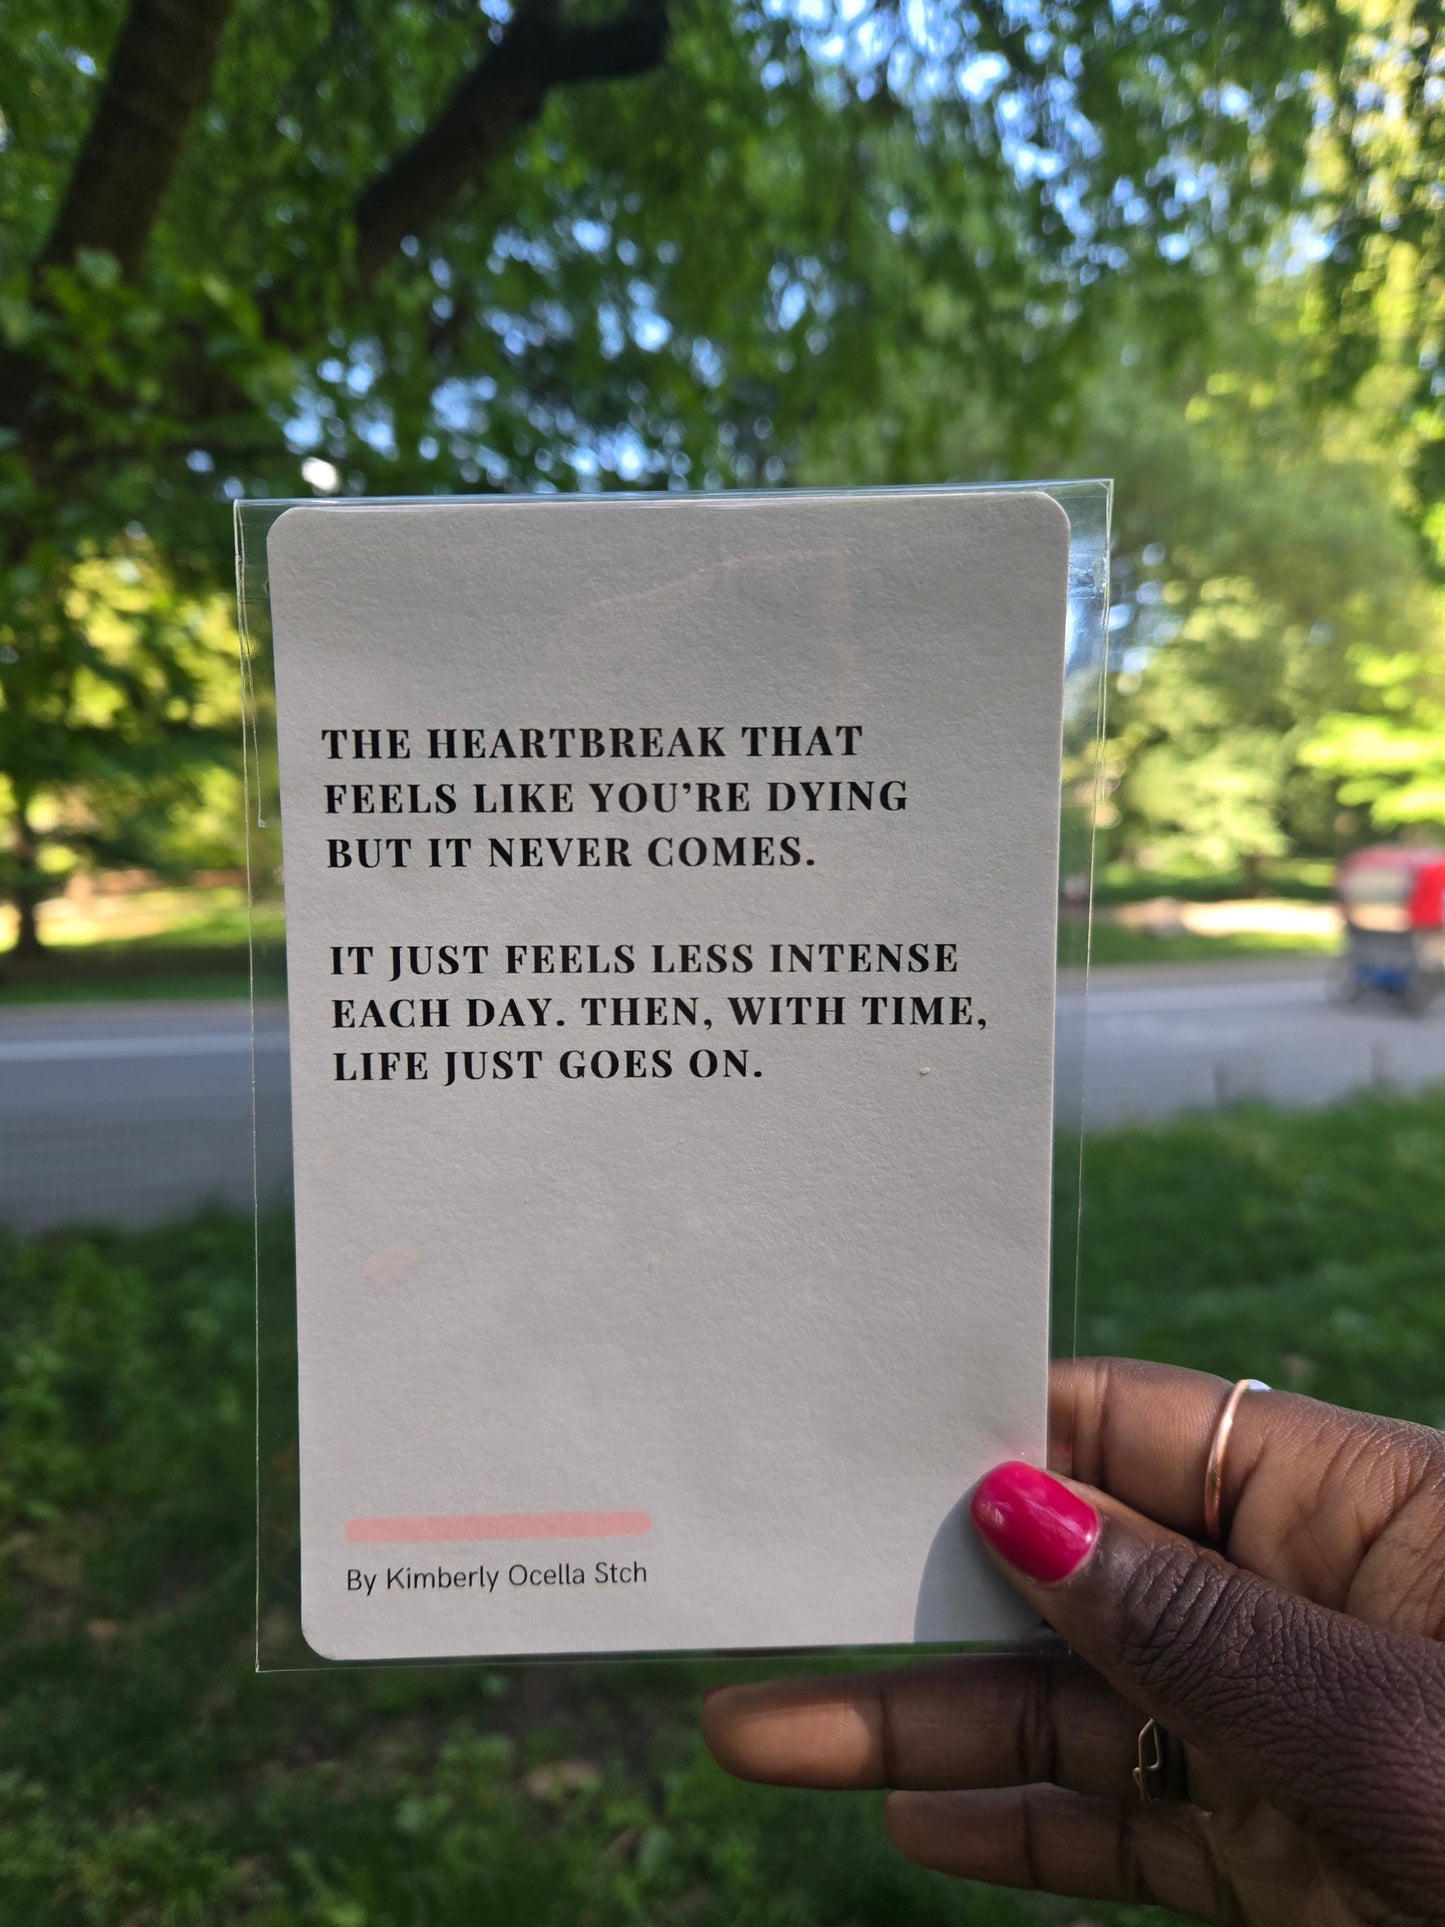 THE HEARTBREAK THAT
FEELS LIKE YOU’RE DYING
BUT IT NEVER COMES.
IT JUST FEELS LESS INTENSE
EACH DAY. THEN, WITH TIME,
LIFE JUST GOES ON.
By Kimberly Ocella Stch